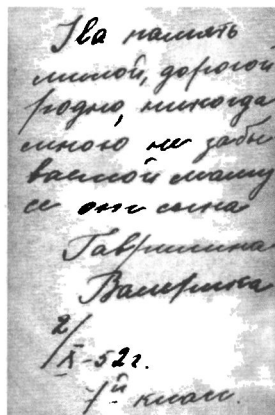 На память
милой, дорогой
родно, никогда
мною не забы
ваемой маму
се от сына
Гаврилина
Валерика
2/
X-52г.
1-й класс.